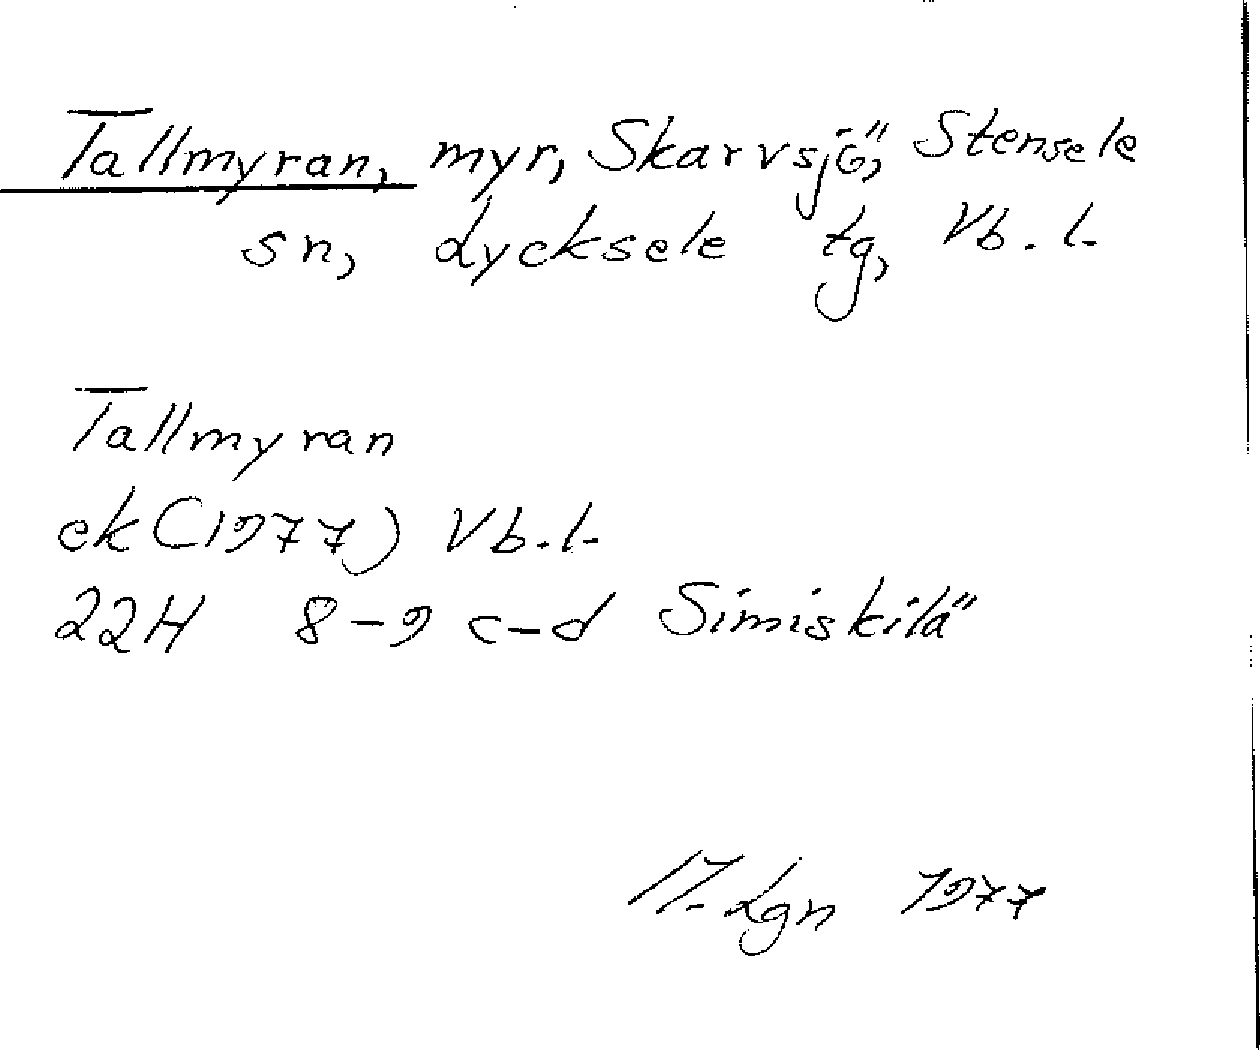 Tallmyran, myr, Skarvsjö, Stensele
sn, Lycksele tg, Vb. l.
Tallmyran
ek (1977) Vb. l.
22H 8-9 c-d Simiskilä
Lgn 1977